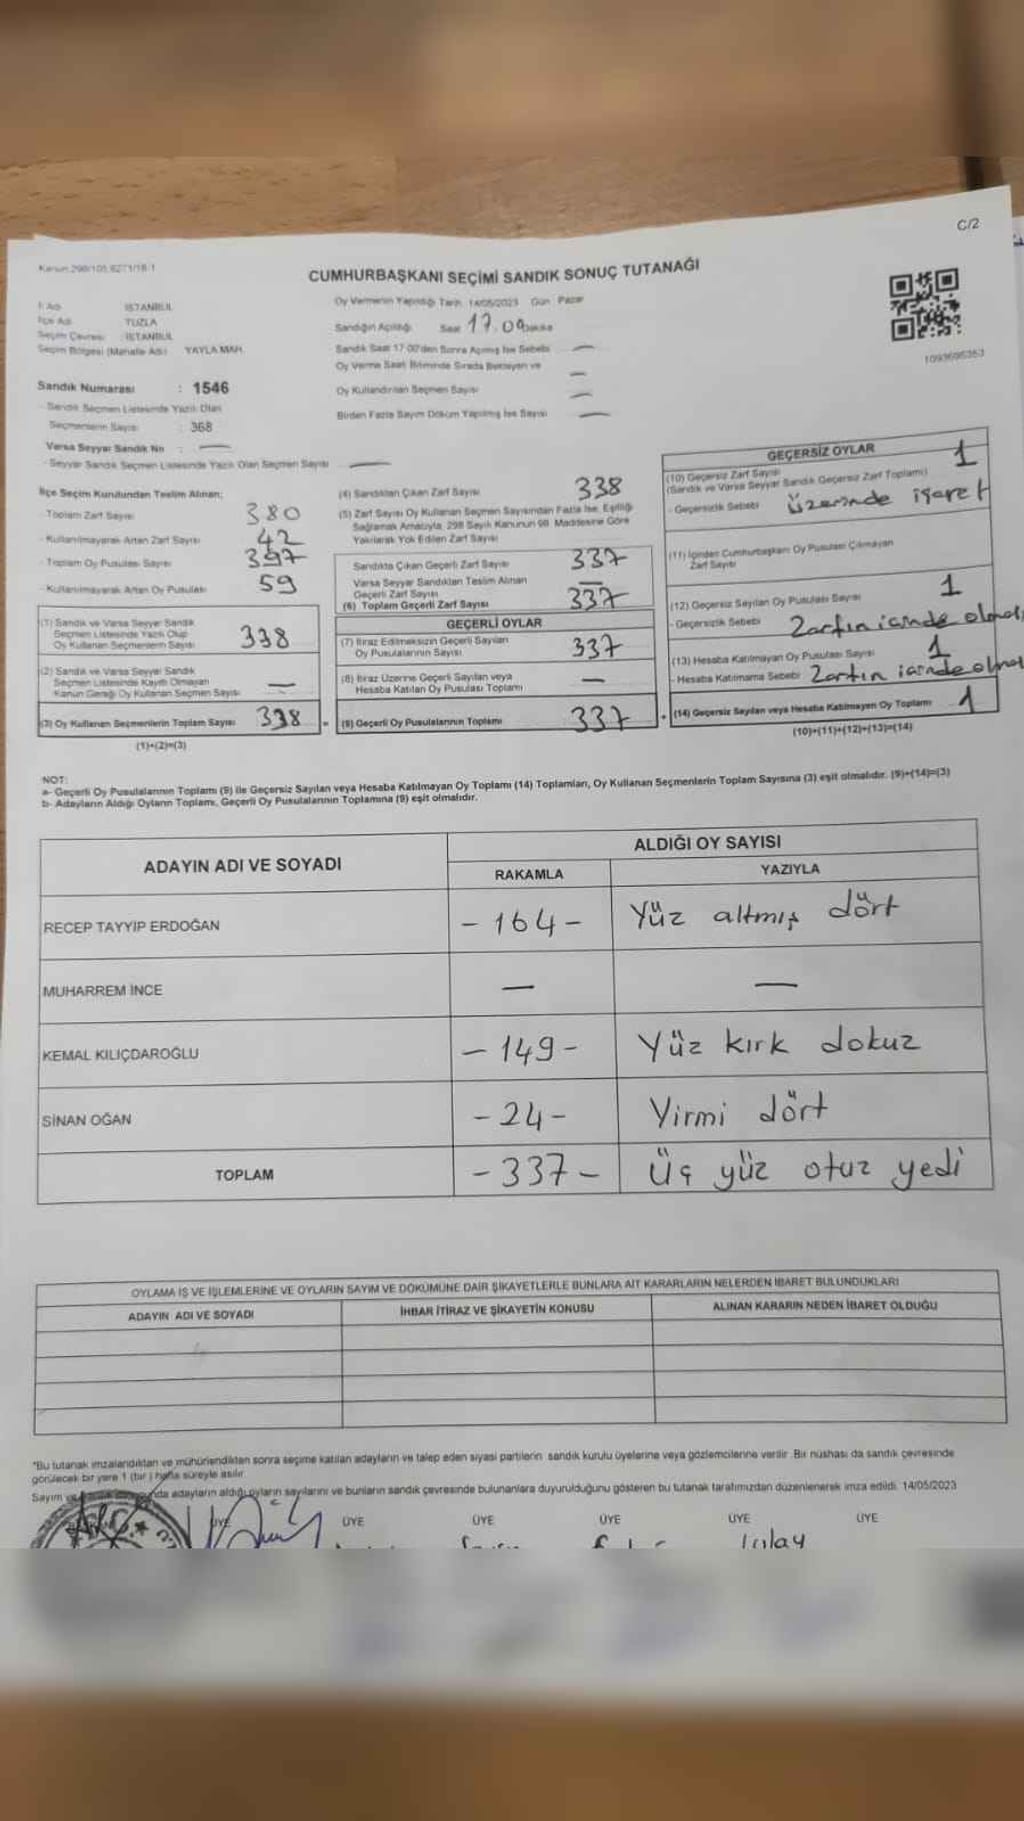 C/2
Kanun:298/105,6271/18/1
CUMHURBAŞKANI SEÇİMİ SANDIK SONUÇ TUTANAĞI
İl Adı : İSTANBUL
İlçe Adı : TUZLA
Seçim Çevresi : İSTANBUL
Seçim Bölgesi (Mahalle Adı) : YAYLA MAH.
Oy Vermenin Yapıldığı Tarih: 14/05/2023 Gün: Pazar
Sandığın Açıldığı Saat 17.00 Dakika
Sandık Saat 17:00'den Sonra Açılmış İse Sebebi —
Oy Verme Saati Bitiminde Sırada Bekleyen ve —
Oy Kullandırılan Seçmen Sayısı —
Birden Fazla Sayım Döküm Yapılmış İse Sayısı —
1093695353
Sandık Numarası : 1546
- Sandık Seçmen Listesinde Yazılı Olan
Seçmenlerin Sayısı : 368
Varsa Seyyar Sandık No : —
- Seyyar Sandık Seçmen Listesinde Yazılı Olan Seçmen Sayısı —
İlçe Seçim Kurulundan Teslim Alınan;
- Toplam Zarf Sayısı 380
- Kullanılmayarak Artan Zarf Sayısı 42
- Toplam Oy Pusulası Sayısı 397
- Kullanılmayarak Artan Oy Pusulası 59
(1) Sandık ve Varsa Seyyar Sandık
Seçmen Listesinde Yazılı Olup
Oy Kullanan Seçmenlerin Sayısı 338
(2) Sandık ve Varsa Seyyar Sandık
Seçmen Listesinde Kayıtlı Olmayan
Kanun Gereği Oy Kullanan Seçmen Sayısı —
(3) Oy Kullanan Seçmenlerin Toplam Sayısı 338 =
(1)+(2)=(3)
(4) Sandıktan Çıkan Zarf Sayısı 338
(5) Zarf Sayısı Oy Kullanan Seçmen Sayısından Fazla İse, Eşitliği
Sağlamak Amacıyla, 298 Sayılı Kanunun 98. Maddesine Göre
Yakılarak Yok Edilen Zarf Sayısı
Sandıkta Çıkan Geçerli Zarf Sayısı 337
Varsa Seyyar Sandıktan Teslim Alınan
Geçerli Zarf Sayısı —
(6) Toplam Geçerli Zarf Sayısı 337
GEÇERLİ OYLAR
(7) İtiraz Edilmeksizin Geçerli Sayılan
Oy Pusulalarının Sayısı 337
(8) İtiraz Üzerine Geçerli Sayılan veya
Hesaba Katılan Oy Pusulası Toplamı —
(9) Geçerli Oy Pusulalarının Toplamı 337 +
GEÇERSİZ OYLAR
(10) Geçersiz Zarf Sayısı 1
(Sandık ve Varsa Seyyar Sandık Geçersiz Zarf Toplamı)
- Geçersizlik Sebebi üzerinde işaret
(11) İçinden Cumhurbaşkanı Oy Pusulası Çıkmayan
Zarf Sayısı
(12) Geçersiz Sayılan Oy Pusulası Sayısı 1
- Geçersizlik Sebebi Zarfın içinde
(13) Hesaba Katılmayan Oy Pusulası Sayısı 1
- Hesaba Katılmama Sebebi Zarfın içinde
(14) Geçersiz Sayılan veya Hesaba Katılmayan Oy Toplamı 1
(10)+(11)+(12)+(13)=(14)
NOT:
a- Geçerli Oy Pusulalarının Toplamı (9) ile Geçersiz Sayılan veya Hesaba Katılmayan Oy Toplamı (14) Toplamları, Oy Kullanan Seçmenlerin Toplam Sayısına (3) eşit olmalıdır. (9)+(14)=(3)
b- Adayların Aldığı Oyların Toplamı, Geçerli Oy Pusulalarının Toplamına (9) eşit olmalıdır.
ADAYIN ADI VE SOYADI
ALDIĞI OY SAYISI
RAKAMLA YAZIYLA
RECEP TAYYİP ERDOĞAN - 164 - Yüz altmış dört
MUHARREM İNCE — —
KEMAL KILIÇDAROĞLU - 149 - Yüz kırk dokuz
SİNAN OĞAN - 24 - Yirmi dört
TOPLAM - 337 - Üç yüz otuz yedi
OYLAMA İŞ VE İŞLEMLERİNE VE OYLARIN SAYIM VE DÖKÜMÜNE DAİR ŞİKAYETLERLE BUNLARA AİT KARARLARIN NELERDEN İBARET BULUNDUKLARI
ADAYIN ADI VE SOYADI İHBAR İTİRAZ VE ŞİKAYETİN KONUSU ALINAN KARARIN NEDEN İBARET OLDUĞU
*Bu tutanak imzalandıktan ve mühürlendikten sonra seçime katılan adayların ve talep eden siyasi partilerin sandık kurulu üyelerine veya gözlemcilerine verilir. Bir nüshası da sandık çevresinde
görülecek bir yere 1 (bir) hafta süreyle asılır.
Sayım adayların aldığı oyların sayılarını ve bunların sandık çevresinde bulunanlara duyurulduğunu gösteren bu tutanak tarafımızdan düzenlenerek imza edildi. 14/05/2023
ÜYE ÜYE ÜYE ÜYE ÜYE ÜYE